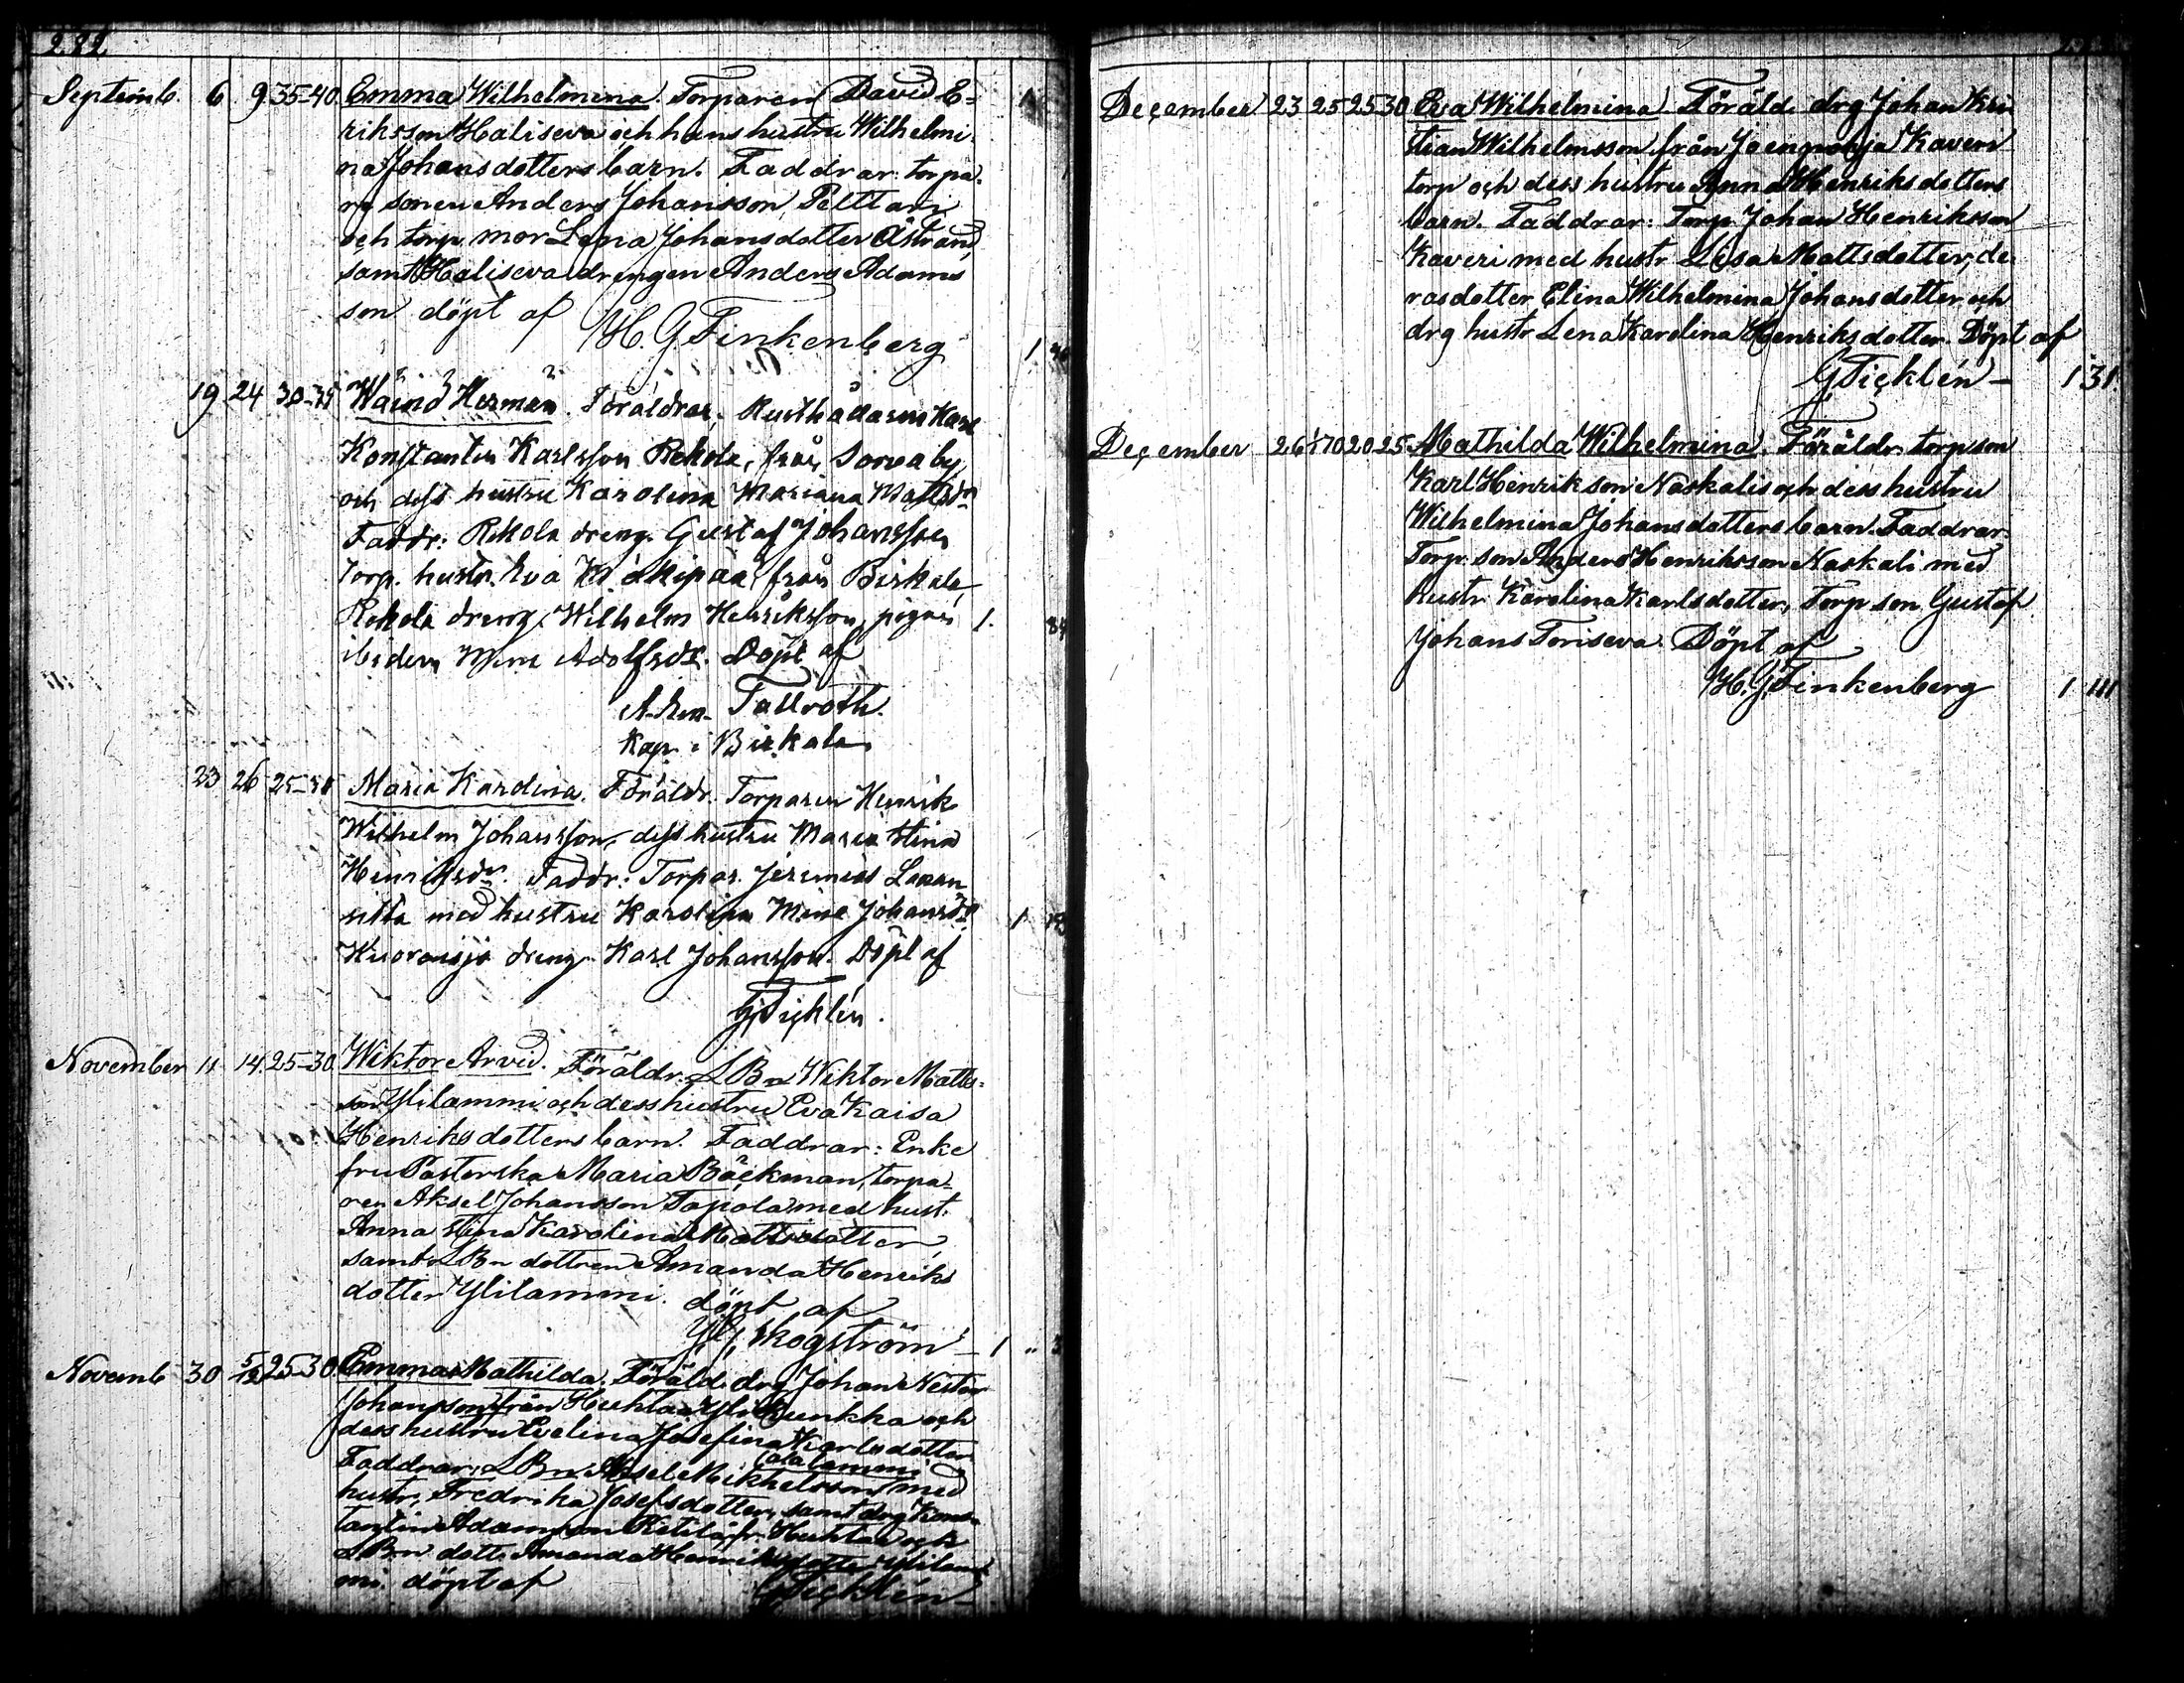 282
Septemb. 6 9 35-40 Emma Wilhelmina. Torparen David E-
riksson Haliseva och hans hustru Wilhelmi-
na Johansdotters barn. Faddrar: torpa-
re sonen Anders Johansson Pelttari
och torp. mor Lena Johansdotter Åstrand,
samt Haliseva drengen Anders Adams
son döpt af
H. G. Finkenberg 1
19 24 30-35 Wäinö Herman. Föräldrar, Rusthållaren Karl
Konstantin Karlsson Rekola, från Sorva by,
och dess hustru Karolina Mariana Mattsdr
Faddr: Rekola dreng. Gustaf Johansson
Torp. hustr. Eva från Birkala,
Rekola dreng. Wilhelm Henriksson, pigan 1. 84
ibidem Mina Adolfsdr. Döpt af
Tallroth.
Kap. i Birkala
23 26 25-30 Maria Karolina. Föräldr. Torparen Henrik
Wilhelm Johansson, dess hustru Maria Stina
Henriksdr. Faddr: Torpar. Jeremias Laaan
sitta med hustru Karolina Mina Johansdr 1
dreng Karl Johansson. Döpt af
G Ticklén.
November 11 14 25-30 Wiktor Arvid. Föräldr. LBn Wiktor Matts-
son Ylilammi och dess hustru Eva Kaisa
Henriksdotters barn. Faddrar: Enke
fru Pastorska Maria Bäckman, torpa-
ren Aksel Johansson Tapola med hust.
Anna Stina Karolina Mattsdotter,
samt LBn dottren Amanda Henriks
dotter Ylilammi. döpt af
Skogström 1 " 3
Novemb 30 5/12 25-30 Emma Mathilda. Föräld. drg Johan Nestor
Johansson från Huhtaa Ylikunkka och
dess hustru Evelina Josefina Karlsdotter
Alalammi
Faddrar, LBn Aksel Mikkelsson med
hustr. Fredrika Josefsdotter, samt drg Kons-
tantin Adamsson Ketola, fr. Huhta och
LBn dott. Amanda Henriksdotter Ylilam
mi. döpt af G Ticklén
December 23 25 25 30 Eva Wilhelmina. Föräld. drg Johan Kri
stian Wilhelmsson från Joenpohja Kaveri
torp och dess hustru Anna Henriksdotters
barn. Faddrar: Torp. Johan Henriksson
Kaveri med hustr Lisa Mattsdotter, de
ras dotter Elina Wilhelmina Johansdotter och
drg hustr Lena Karolina Henriksdotter. Döpt af
G Ticklén 1 31
December 26 1/1 70 20-25 Mathilda Wilhelmina. Föräldr. torp son
Karl Henriksson Naskali och dess hustru
Wilhelmina Johansdotters barn. Faddrar.
Torp. son Anders Henriksson Naskali med
hustr Karolina Karlsdotter, Torp son Gustaf
Johans Toriseva. Döpt af
H. G. Finkenberg 1 111